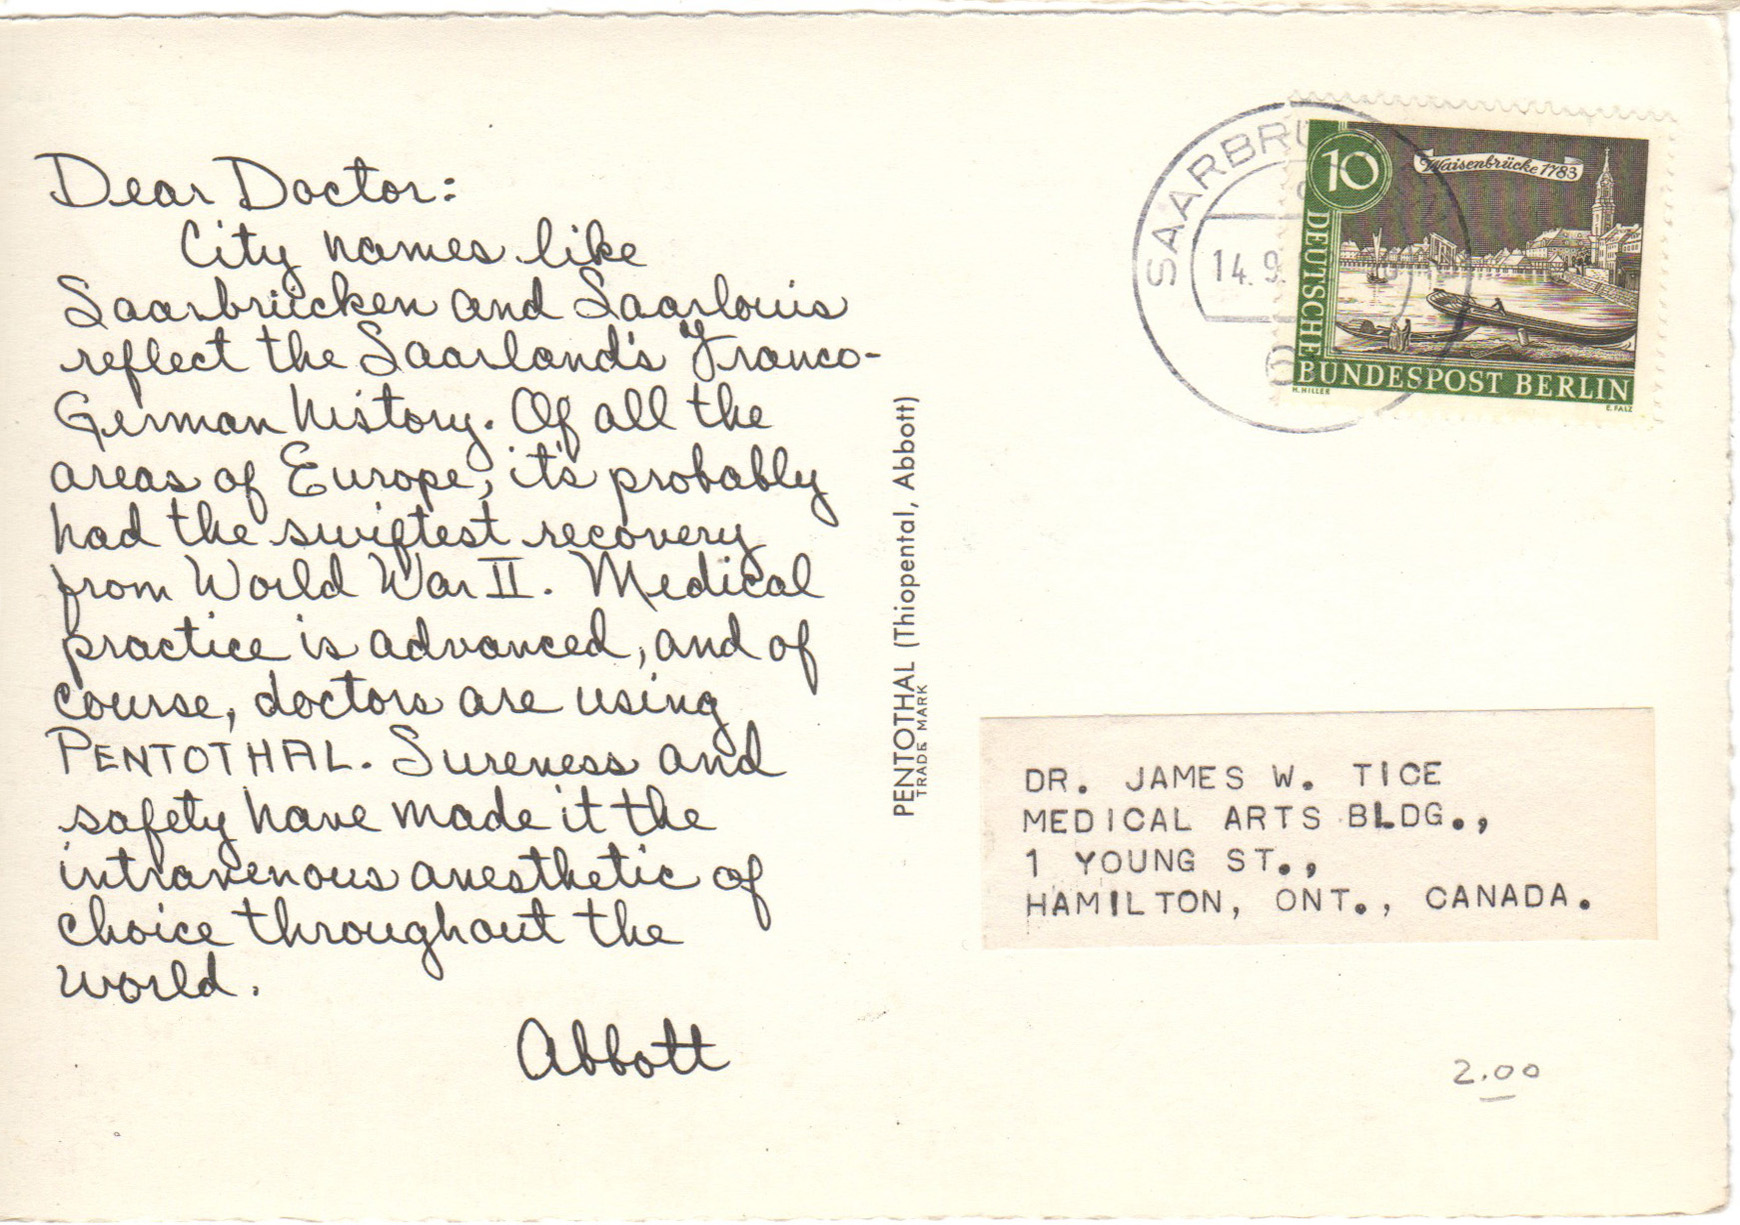 Dear Doctor:
City names like
Saarbrücken and Saarlouis
reflect the Saarland's Franco-
German history. Of all the
areas of Europe, it's probably
had the swiftest recovery
from World War II. Medical
practice is advanced, and of
course, doctors are using
PENTOTHAL. Sureness and
safety have made it the
intravenous anesthetic of
choice throughout the
world.
Abbott
PENTOTHAL (Thiopental, Abbott)
TRADE MARK
SAARBRÜ
14.9.
10
Waisenbrücke 1783
DEUTSCHE
BUNDESPOST BERLIN
H.HILLER
E.FALZ
DR. JAMES W. TICE
MEDICAL ARTS BLDG.,
1 YOUNG ST.,
HAMILTON, ONT., CANADA.
2.00